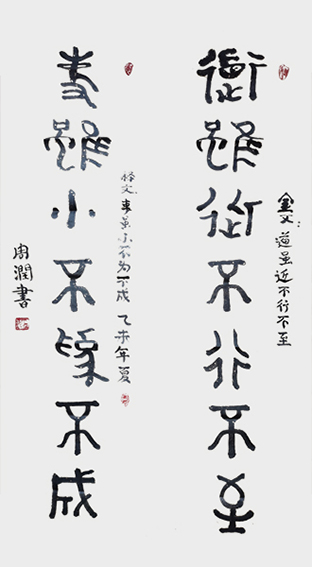 金文：道虽近不行不至
衜雖近不行不至
释文 事虽小不为不成 乙未年夏
事雖小不為不成
周潤書